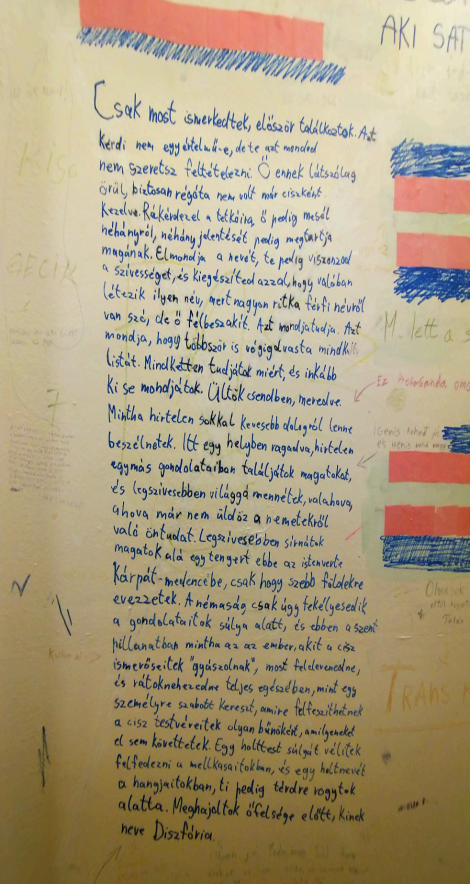 AKI SAT
Csak most ismerkedtek, először találkoztok. Azt
kérdi nem egyértelmű-e, de te azt mondod
nem szeretsz feltételezni. Ő ennek látszólag
örül, biztosan régóta nem volt már ciszként
kezelve. Rákérdezel a tetkóira, ő pedig mesél
néhányról, néhány jelentését pedig megtartja
magának. Elmondja a nevét, te pedig viszonzod
a szívességet, és kiegészíted azzal, hogy valóban
létezik ilyen név, mert nagyon ritka férfi névről
van szó, de ő félbeszakít. Azt mondja tudja. Azt
mondja, hogy többször is végigolvasta mindkét
listát. Mindketten tudjátok miért, és inkább
ki se mondjátok. Ültök csendben, meredve.
Mintha hirtelen sokkal kevesebb dologról lenne
beszélnetek. Itt egy helyben ragadva, hirtelen
egymás gondolataiban találjátok magatokat,
és legszívesebben világgá mennétek, valahova,
ahova már nem üldöz a nemetekről
való öntudat. Legszívesebben sírnátok
magatok alá egy tengert ebbe az istenverte
Kárpát-medencébe, csak hogy szebb földekre
evezzetek. A némaság csak úgy fekélyesedik
a gondolataitok súlya alatt, és ebben a szent
pillanatban mintha az az ember, akit a cisz
ismerőseitek "gyászolnak", most felderengne,
és rátoknehezedne teljes egészében, mint egy
személyre szabott kereszt, amire felfeszíthetnek
a cisz testvéreitek olyan bűnökért, amilyeneket
el sem követtetek. Egy holttest súlyát vélitek
felfedezni a mellkasaitokban, és egy holtnevét
a hangjaitokban, ti pedig térdre rogytok
alatta. Meghajoltok őfelsége előtt, kinek
neve Diszfória.
GECIK
7
M. lett a s
Ez
TRANS